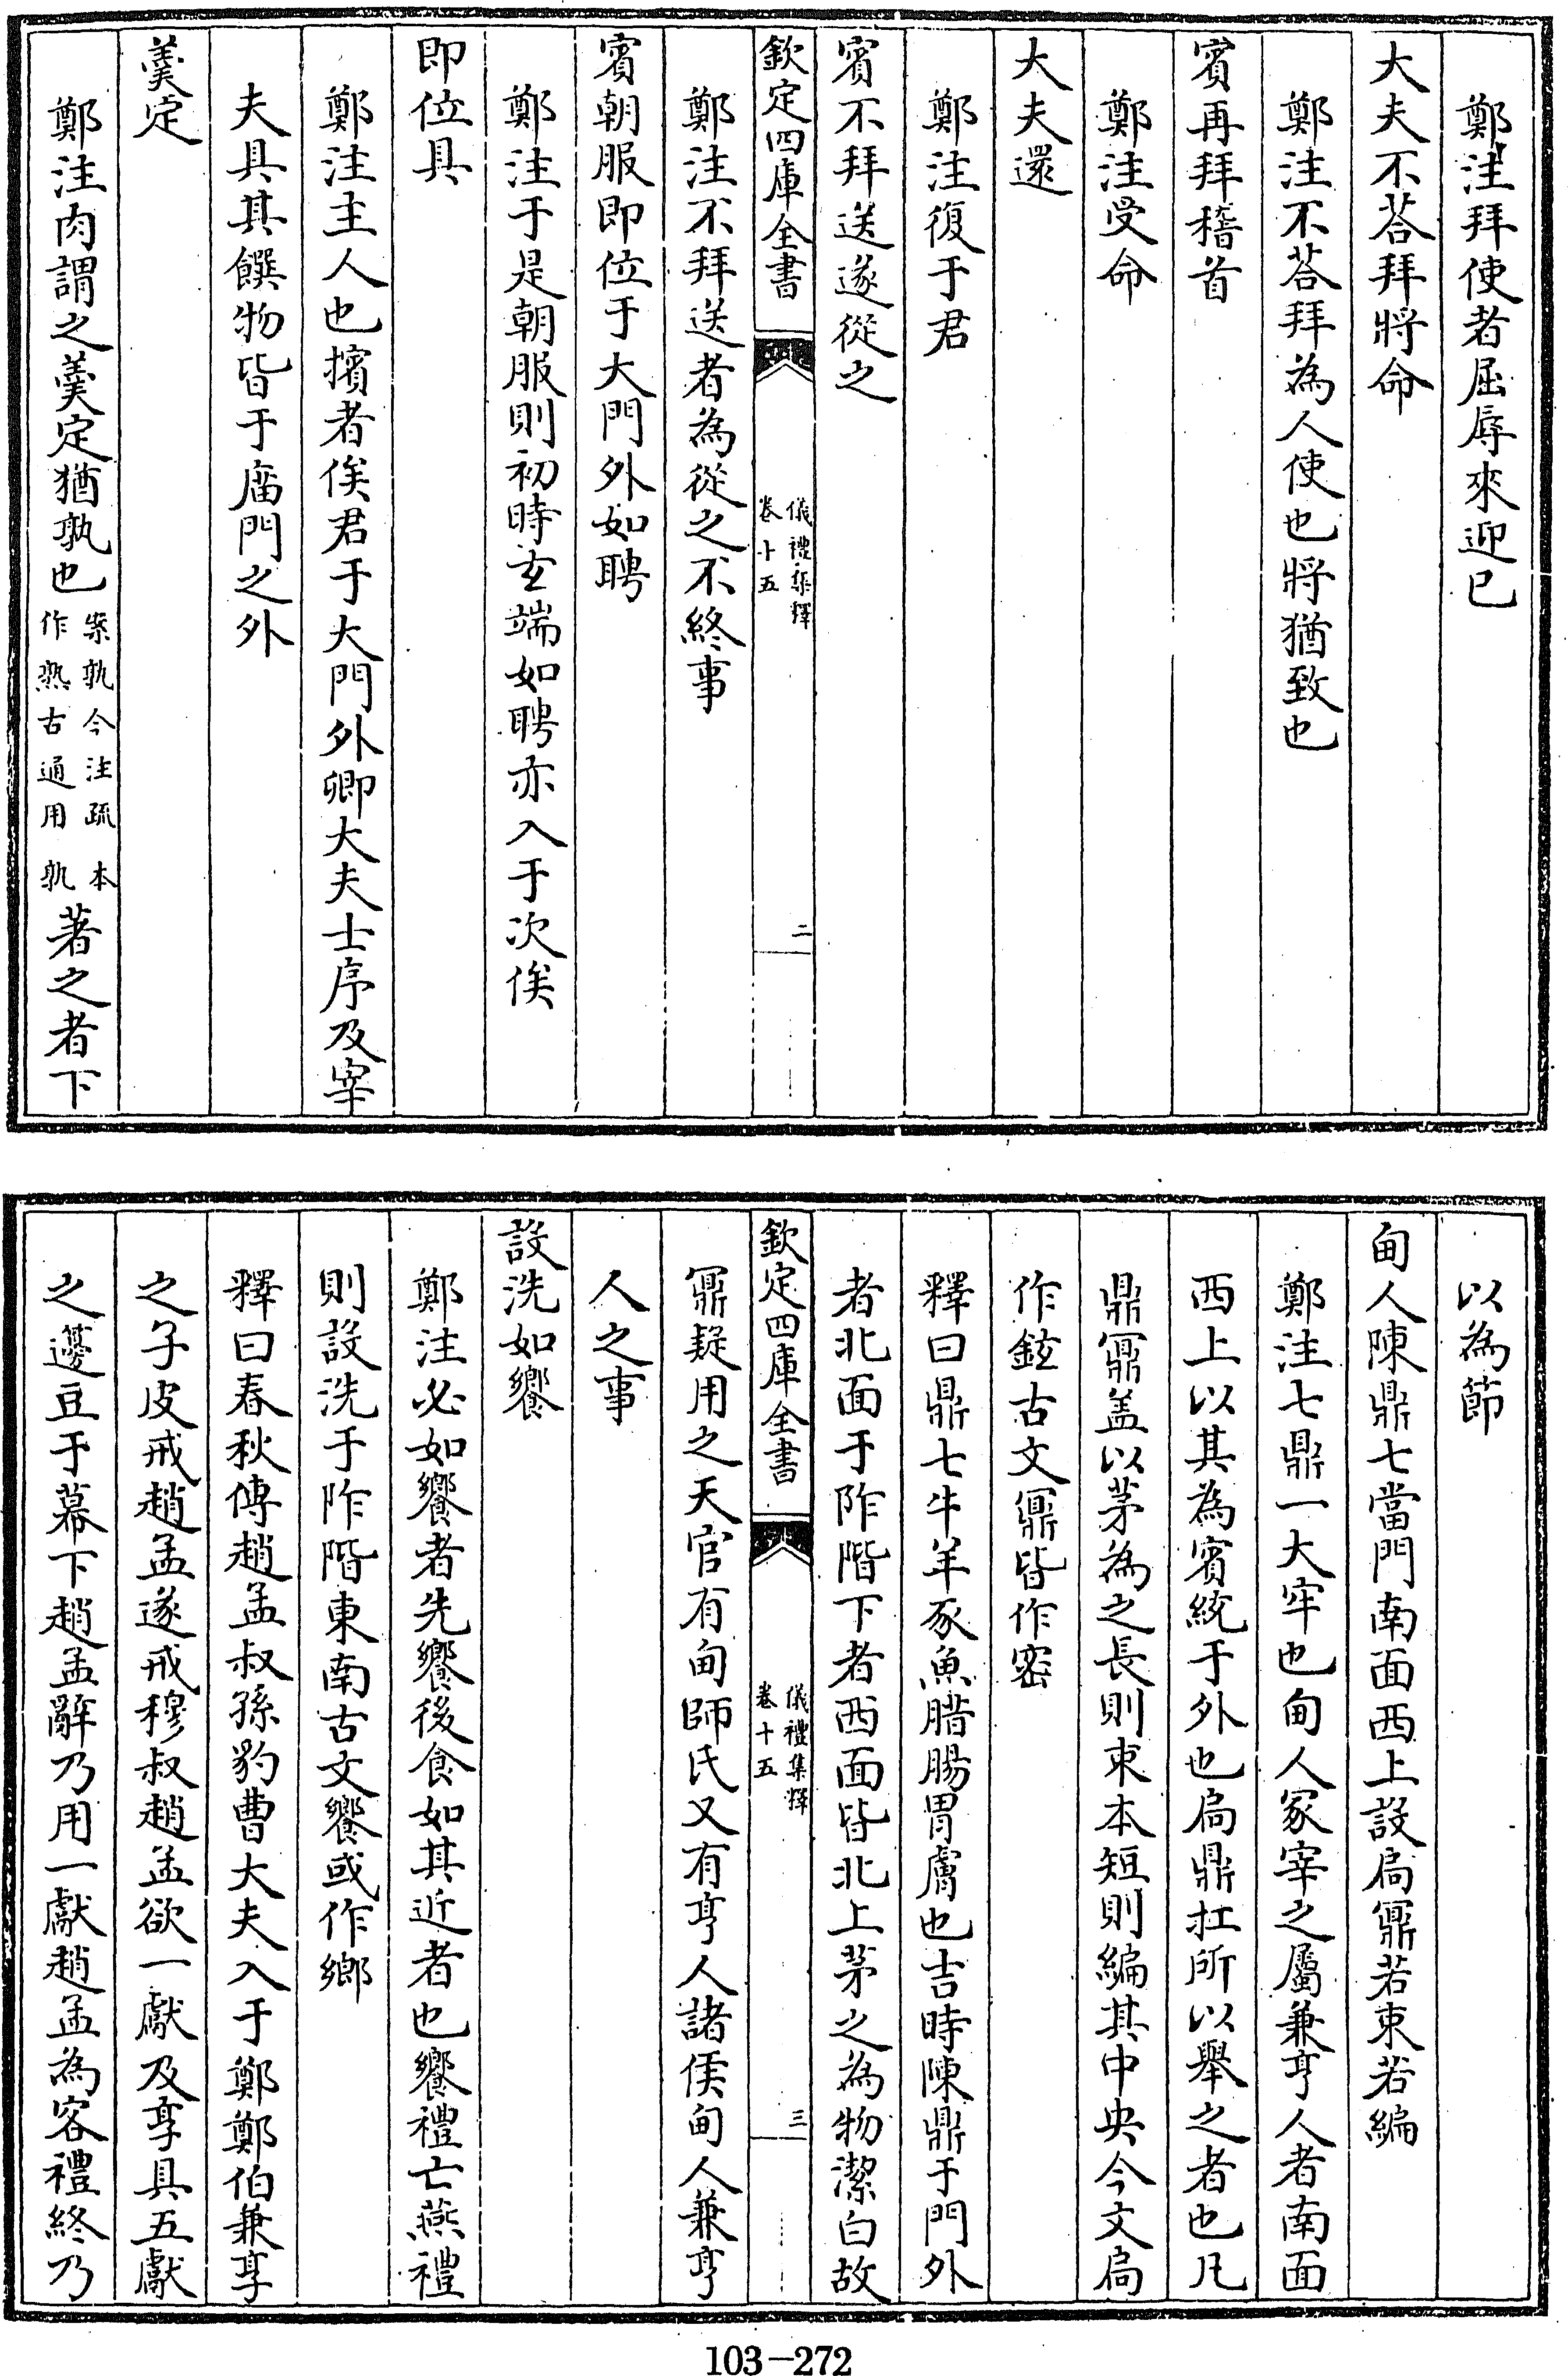 鄭注拜使者屈辱來迎已
大夫不荅拜將命
鄭注不荅拜為人使也將猶致也
賓再拜稽首
鄭注受命
大夫還
鄭注復于君
賓不拜送遂從之
欽定四庫全書
儀禮集釋
卷十五
二
鄭注不拜送者為從之不終事
賓朝服即位于大門外如聘
鄭注于是朝服則初時玄端如聘亦入于次俟
即位具
鄭注主人也擯者俟君于大門外卿大夫士序及宰
夫具其饌物皆于廟門之外
羹定
鄭注肉謂之羹定猶孰也
案孰今注疏本
作熟古通用孰
著之者下
以為節
甸人陳鼎七當門南面西上設扃鼏若束若編
鄭注七鼎一大牢也甸人冢宰之屬兼亨人者南面
西上以其為賓統于外也扃鼎扛所以舉之者也凡
鼎鼏盖以茅為之長則束本短則編其中央今文扃
作鉉古文鼏皆作密
釋曰鼎七牛羊豕魚腊腸胃膚也吉時陳鼎于門外
者北面于阼階下者西面皆北上茅之為物潔白故
欽定四庫全書
儀禮集釋
卷十五
三
鼏疑用之天官有甸師氏又有亨人諸侯甸人兼亨
人之事
設洗如饗
鄭注必如饗者先饗後食如其近者也饗禮亡燕禮
則設洗于阼階東南古文饗或作鄉
釋曰春秋傳趙孟叔孫豹曹大夫入于鄭鄭伯兼享
之子皮戒趙孟遂戒穆叔趙孟欲一獻及享具五獻
之籩豆于幕下趙孟辭乃用一獻趙孟為客禮終乃
103-272